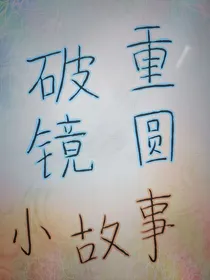 破镜
重圆
小故事